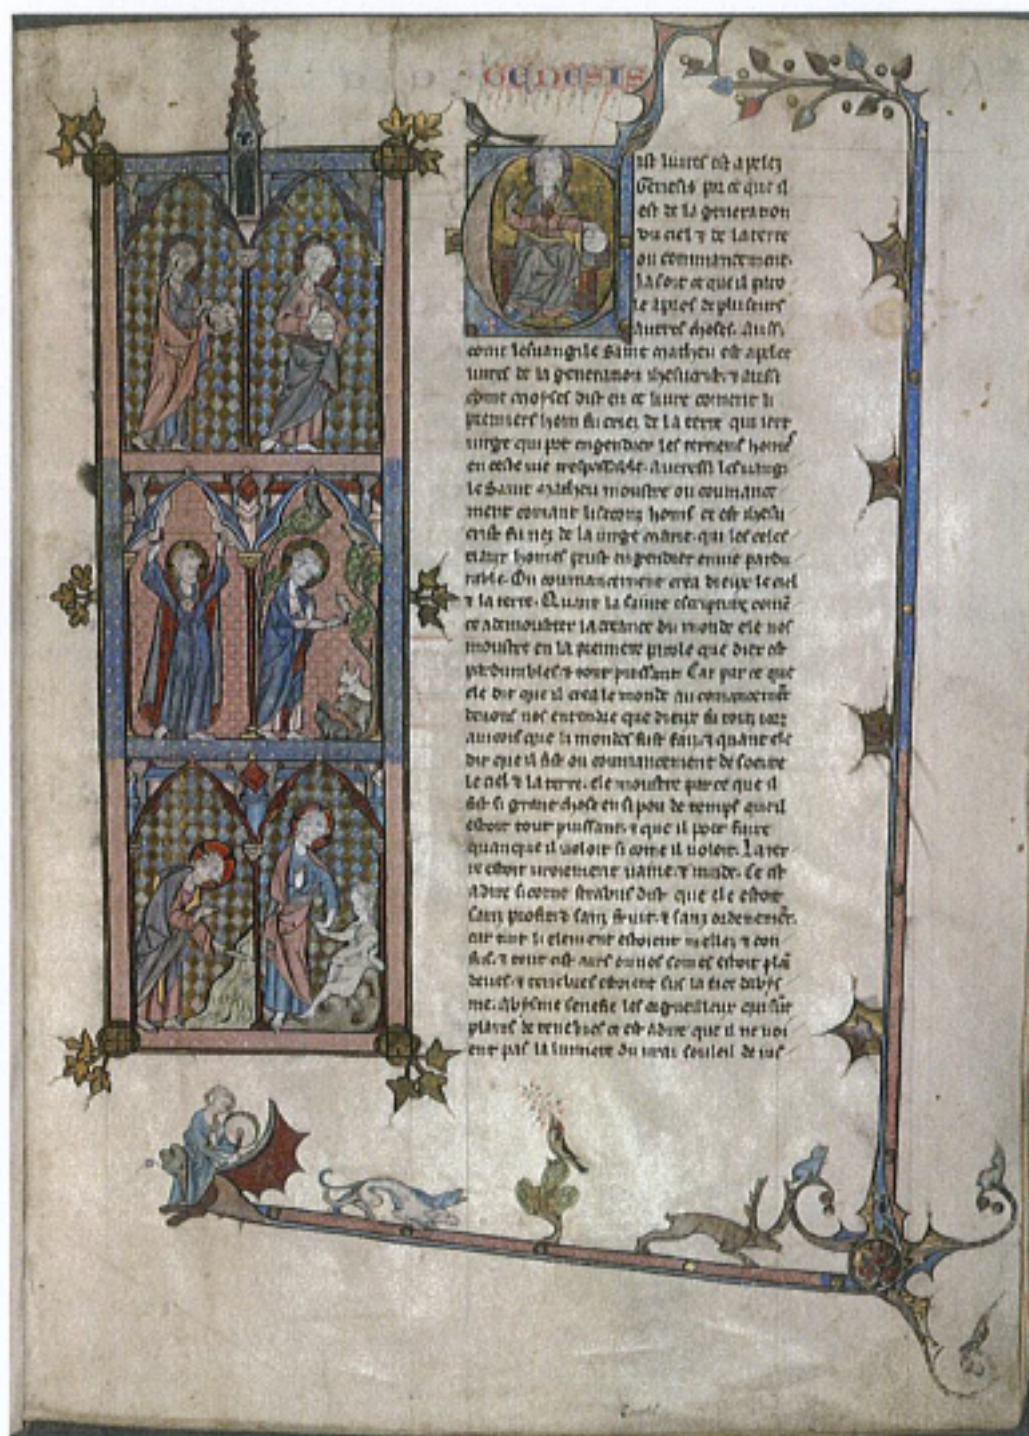 GENESIS
ist livres est apelez
Genesis par ce que il
est de la generation
du ciel ⁊ de la terre
ou commancement.
la soit ce que il paro
le apres de pluseurs
autres choses. Aussi
come lesuangile saint matheu est apelee
livres de la generation ihesucrist. ⁊ aussi
come moyses dist en ce livre coment li
premiers hom fu criez de la terre qui iert
virge qui pot engendrer les terriens homes
en ceste vie trespassable. Autressi lesuangi
le saint matheu moustre ou coumance
ment comant li secons homs ce est ihesu
crist fu nez de la virge marie. qui les celes
tiaux homes peust engendrer en vie pardu
rable. Ou coumancement crea dieux le ciel
⁊ la terre. Quant la sainte escripture comē
ce a demoustrer la creance du monde ele nos
moustre en la premiere parole que diex est
pardurables ⁊ tout puissant. Car par ce que
ele dit que il crea le monde au comancemēt
devons nos entendre que dieux fu touz iorz
aincois que li mondes fust faiz. ⁊ quant ele
dit que il fist ou coumancement de soeure
le ciel ⁊ la terre. ele moustre par ce que il
fist si grant chose en si pou de temps que il
estoit tout puissant. ⁊ que il poet faire
quanque il voloit si come il voloit. La ter
re estoit vraiement vaine. ⁊ vuide. Ce est
a dire si come strabus dist que ele estoit
sanz profit ⁊ sanz fruit. ⁊ sanz ordenemēt.
car tuit li element estoient mellez ⁊ con
fus. ⁊
de tenebres ce est a dire que il ne voi
ent pas la lumiere du vrai souleil de ius